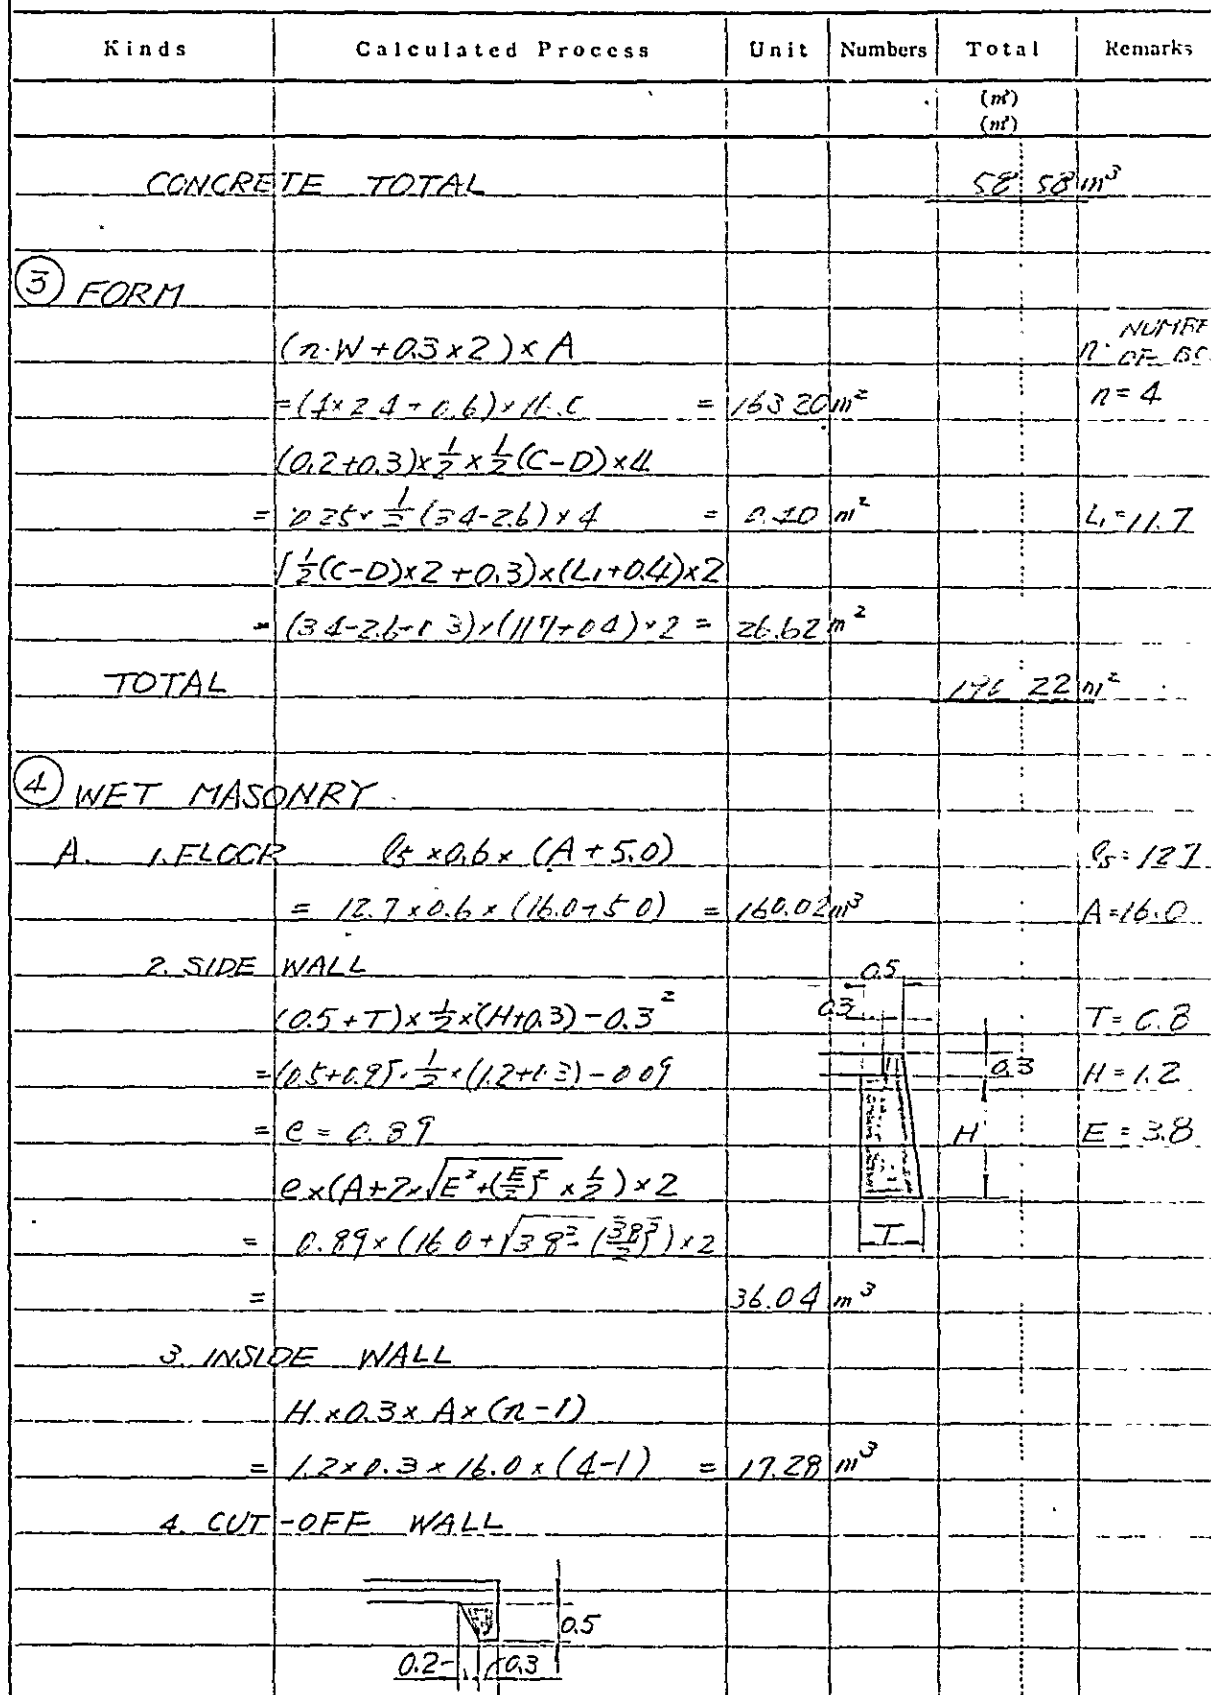 Kinds Calculated Process Unit Numbers Total Remarks
(m³)
(m²)
CONCRETE TOTAL 58 58 m³
③ FORM
(n·W+0.3×2)×A n: NUMBE
OF
=(4×2.4+0.6)×16.0 = 163.20 m² n=4
(0.2+0.3)×½×½(C-D)×4
= 0.25×½(3.4-2.6)×4 = 0.40 m² L₁=11.7
(½(C-D)×2+0.3)×(L₁+0.4)×2
= (3.4-2.6+0.3)×(11.7+0.4)×2 = 26.62 m²
TOTAL 22 m²
④ WET MASONRY
A. 1. FLOOR ℓ₅×0.6×(A+5.0) ℓ₅=12.7
= 12.7×0.6×(16.0+5.0) = 160.02 m³ A=16.0
2. SIDE WALL 0.5
(0.5+T)×½×(H+0.3)-0.3² 0.3 T=0.8
=(0.5+0.8)·½×(1.2+0.3)-0.09 0.3 H=1.2
= e = 0.89 H E=3.8
e×(A+2×√E²+(E/2)²×½)×2
= 0.89×(16.0+√3.8²+(3.8/2)²)×2 T
= 36.04 m³
3. INSIDE WALL
H×0.3×A×(n-1)
= 1.2×0.3×16.0×(4-1) = 17.28 m³
4. CUT-OFF WALL
0.5
0.2 0.3